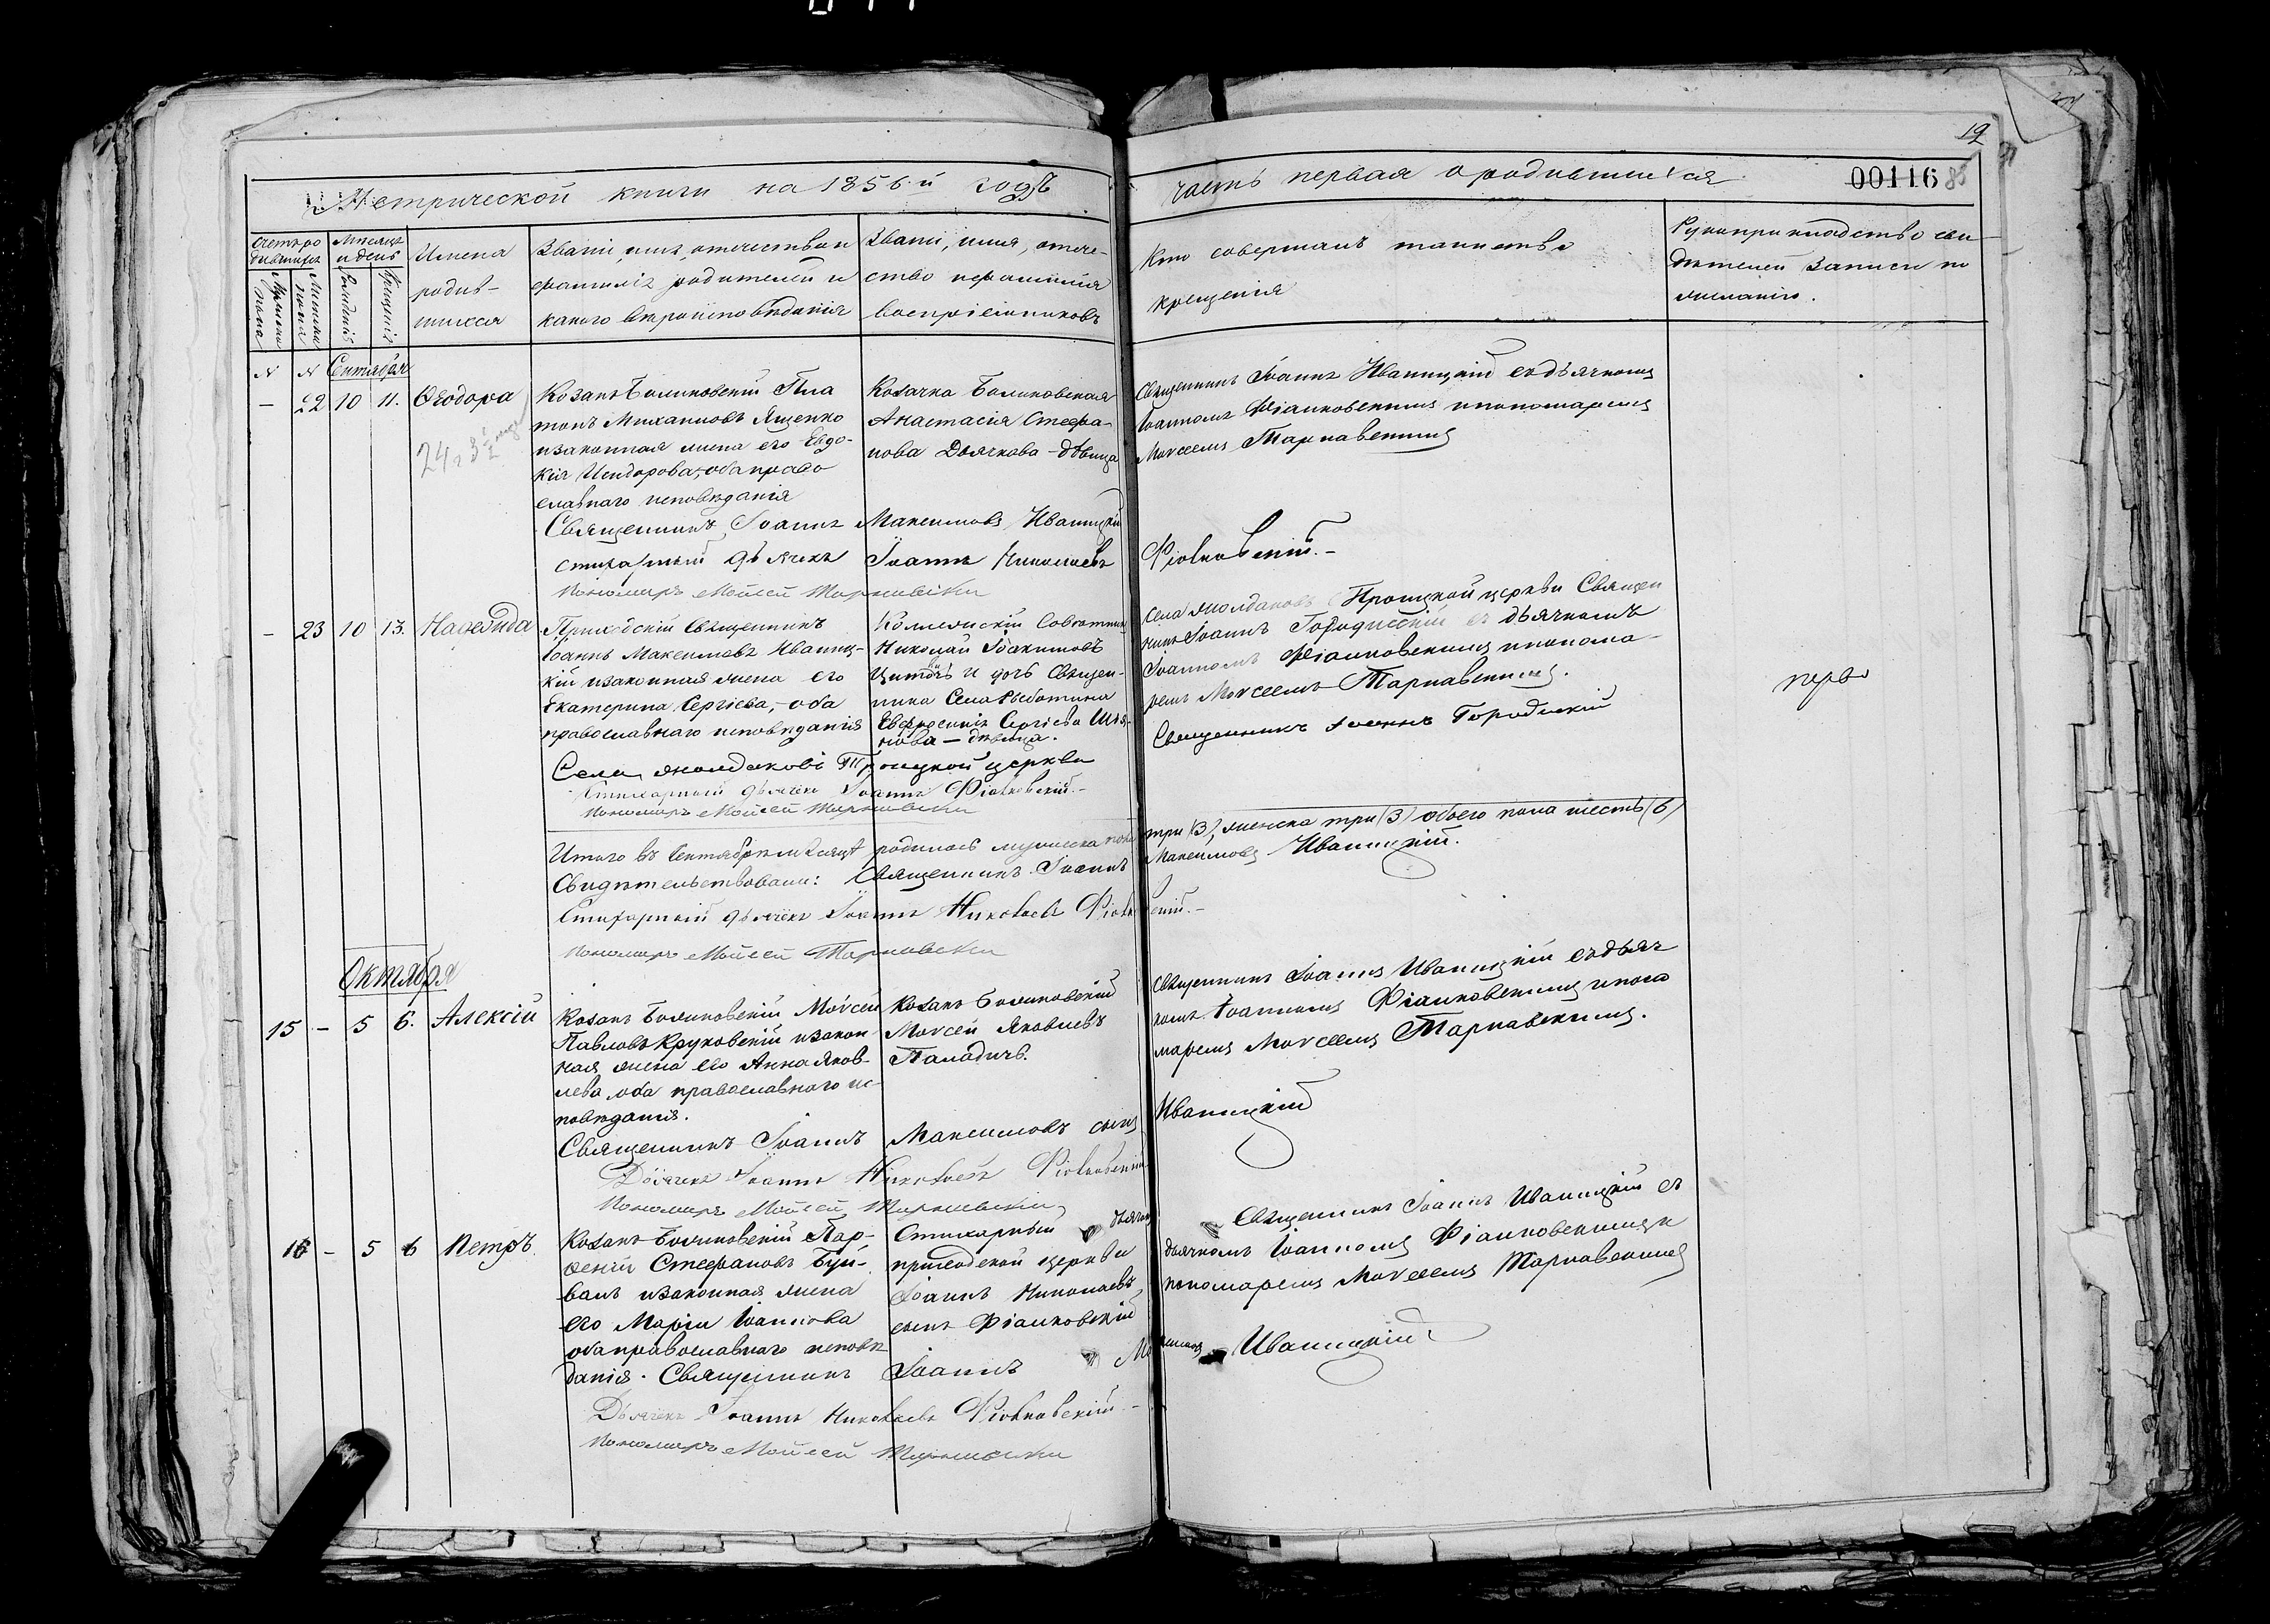 19
Метрической книги на 1856й годъ
часть первая о родившихся
00116
Счетъ ро
дившихъ
Мужеска
пола
Женска
пола
Мѣсяцъ
и день
Рожденія
Крещенія
Имена
родив-
шихся
Званіе, имя, отечество и
фамилія родителей и
какого вѣроисповѣданія
Званіе, имя, отече-
ство и фамилія
воспріемниковъ
Кто совершалъ таинство
крещенія
Рукоприкладство сви-
дѣтелей записи по
желанію.
N N Сентября
- 22 10 11. Ѳеодора
Козакъ Пла
тонъ Михаиловъ Ященко
и законная жена его Евдо-
кія Исидорова, оба право
славнаго исповѣданія
Козачка
Анастасія Стефа-
нова Дьячкова - дѣвица
Священникъ Іоаннъ Иваницкій съ дьячкомъ
Іоанномъ Фіалковскимъ и пономаремъ
Моѵсеемъ Тарнавскимъ
Священникъ Іоаннъ Максимовъ Иваницкій
стихарный дьячекъ Іоаннъ Николаевъ Фіалковскій. -
Пономарь Мойсей Тарнавскій
- 23 10 13. Надежда
Приходскій Священникъ
Іоаннъ Максимовъ Иваниц-
кій и законная жена его
Екатерина Сергіева, - оба
православнаго исповѣданія
Николай Іоакимовъ
и дочь Священ-
ника Села
Евфросинія Сергіева
нова - дѣвица.
Села Троицкой церкви Священ
никъ Іоаннъ Городискій съ дьячкомъ
Іоанномъ Фіалковскимъ и понома-
ремъ Моѵсеемъ Тарнавскимъ.
Священникъ Іоаннъ Городискій
Села Троицкой церкви
Стихарный дьячекъ Іоаннъ Фіалковскій. -
Пономарь Мойсей Тарнавскій
Итого въ Сентябрѣ мѣсяцѣ родилось мужеска пола три (3), женска три (3) обоего пола шесть (6)
Свидѣтельствовали: Священникъ Іоаннъ Максимовъ Иваницкій.
Стихарный дьячекъ Іоаннъ Николаевъ Фіалковскій. -
Пономарь Мойсей Тарнавскій
Октября
15 - 5 6. Алексій
Козакъ Моѵсей
Павловъ Круковскій и закон
ная жена его Анна Яков-
лева, оба православнаго ис-
повѣданія.
Козакъ
Моѵсей Яковлевъ
Паладичъ.
Священникъ Іоаннъ Иваницкій съ дьяч
комъ Іоанномъ Фіалковскимъ и поно
маремъ Моѵсеемъ Тарнавскимъ.
Священникъ Іоаннъ Максимовъ сынъ Иваницкій
Дьячекъ Іоаннъ Николаевъ Фіалковскій
Пономарь Мойсей Тарнавскій
16 - 5 6 Петръ.
Козакъ Пар-
ѳеній Стефановъ Буй-
валъ и законная жена
его Марія Іоаннова
оба православнаго исповѣ
данія.
Стихарный дьячекъ
приходской церкви
Іоаннъ Николаевъ
сынъ Фіалковскій
Священникъ Іоаннъ Иваницкій съ
дьячкомъ Іоанномъ Фіалковскимъ и
пономаремъ Моѵсеемъ Тарнавскимъ
Священникъ Іоаннъ Иваницкій
Дьячекъ Іоаннъ Николаевъ Фіалковскій. -
Пономарь Мойсей Тарнавскій